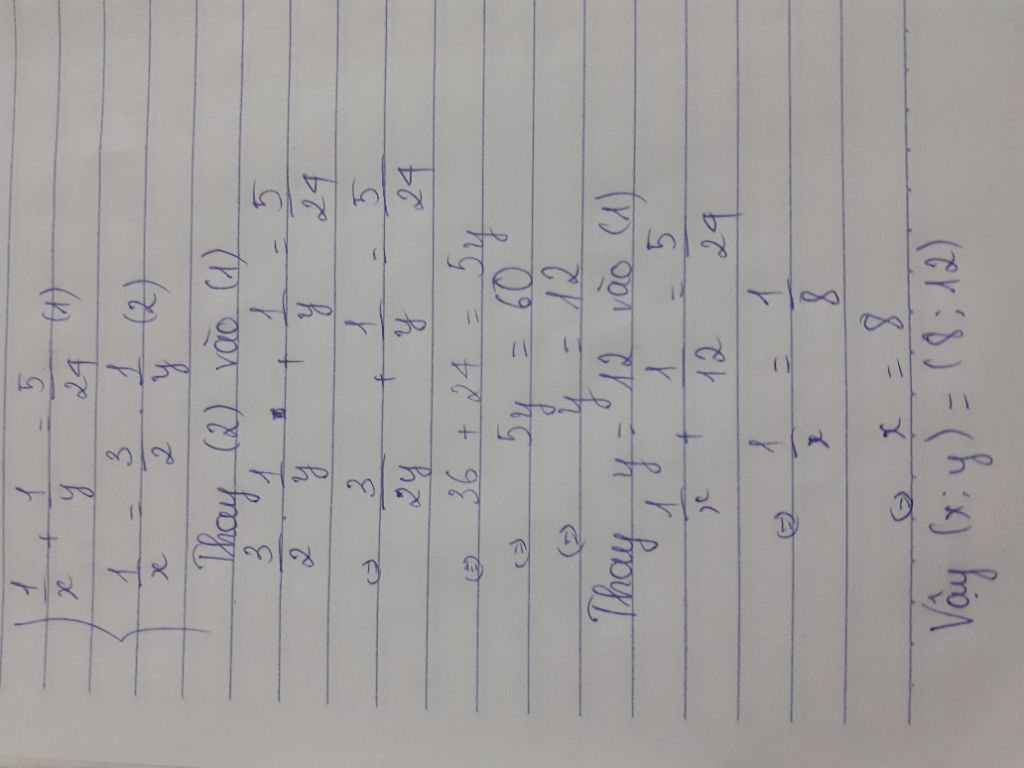 1/x + 1/y = 5/24 (1)
1/x = 3/2 . 1/y (2)
Thay (2) vào (1)
3/2 . 1/y + 1/y = 5/24
⇔ 3/2y + 1/y = 5/24
⇔ 36 + 24 = 5y
⇔ 5y = 60
⇔ y = 12
Thay y = 12 vào (1)
1/x + 1/12 = 5/24
⇔ 1/x = 1/8
⇔ x = 8
Vậy (x; y) = (8; 12)